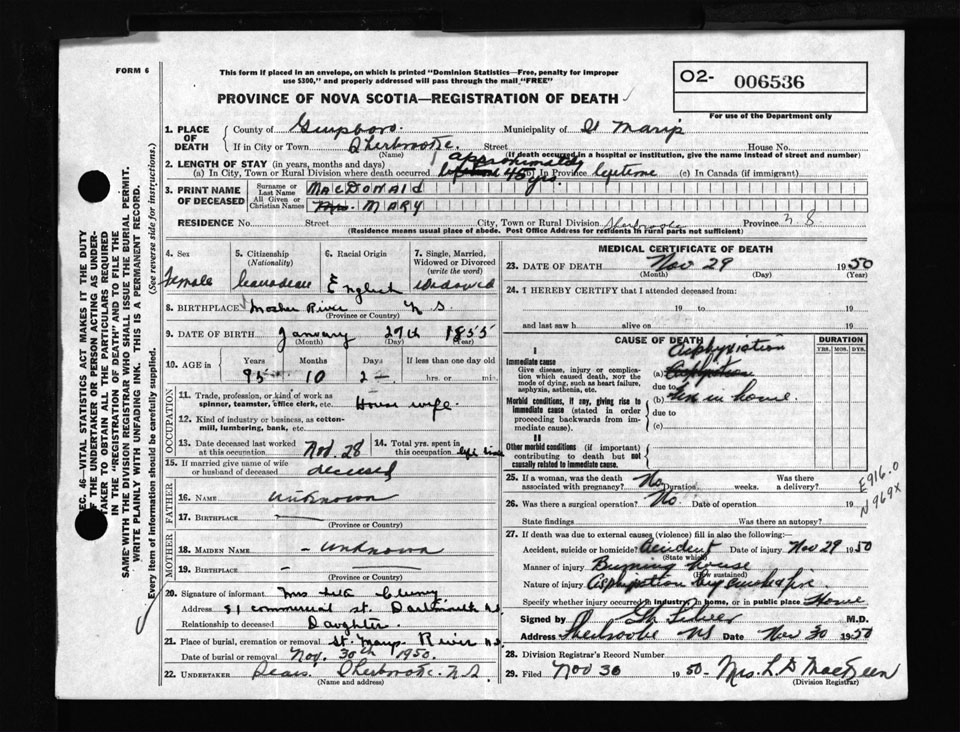 FORM 6
This form if placed in an envelope, on which is printed "Dominion Statistics—Free, penalty for improper
use $300," and properly addressed will pass through the mail "FREE"
O2- 006536
For use of the Department only
PROVINCE OF NOVA SCOTIA—REGISTRATION OF DEATH
1. PLACE OF DEATH County of Guysboro. Municipality of St Marys
If in City or Town Sherbrooke Street House No.
(Name) (If death occurred in a hospital or institution, give the name instead of street and number)
2. LENGTH OF STAY (in years, months and days) approximately
(a) In City, Town or Rural Division where death occurred 45 yrs. (b) In Province lifetime (c) In Canada (if immigrant)
3. PRINT NAME OF DECEASED Surname or Last Name MACDONALD
All Given or Christian Names Mrs. MARY
RESIDENCE No. Street City, Town or Rural Division Sherbrooke Province N.S
(Residence means usual place of abode. Post Office Address for residents in rural parts not sufficient)
4. Sex Female
5. Citizenship (Nationality) Canadian
6. Racial Origin English
7. Single, Married, Widowed or Divorced (write the word) Widowed
8. BIRTHPLACE Mosher River N S.
(Province or Country)
9. DATE OF BIRTH January 27th 1855
(Month) (Day) (Year)
10. AGE in Years 95 Months 10 Days 2 If less than one day old hrs. or min.
OCCUPATION
11. Trade, profession, or kind of work as spinner, teamster, office clerk, etc. House wife.
12. Kind of industry or business, as cotton-mill, lumbering, bank, etc.
13. Date deceased last worked at this occupation Nov. 28 14. Total yrs. spent in this occupation life time
15. If married give name of wife or husband of deceased deceased
FATHER
16. NAME unknown
17. BIRTHPLACE
(Province or Country)
MOTHER
18. MAIDEN NAME - unknown
19. BIRTHPLACE
(Province or Country)
20. Signature of informant Mrs
Address 51 commercial st. Dartmouth N.S.
Relationship to deceased Daughter.
21. Place of burial, cremation or removal St. Marys River N.S
Date of burial or removal Nov. 30th 1950.
22. UNDERTAKER Sherbrooke. N.S
(Name and address)
MEDICAL CERTIFICATE OF DEATH
23. DATE OF DEATH Nov 29 1950
(Month) (Day) (Year)
24. I HEREBY CERTIFY that I attended deceased from:
19 to 19
and last saw h alive on 19
CAUSE OF DEATH DURATION
YRS. MOS. DYS.
I
Immediate cause
Give disease, injury or complication which caused death, NOT the mode of dying, such as heart failure, asphyxia, asthenia, etc.
Asphyxiation
(a)
due to
Morbid conditions, if any, giving rise to immediate cause (stated in order proceeding backwards from immediate cause).
(b) Fire in home.
due to
(c)
II
Other morbid conditions (if important) contributing to death but not causally related to immediate cause.
25. If a woman, was the death associated with pregnancy? No Duration weeks. Was there a delivery?
26. Was there a surgical operation? No. Date of operation 19
State findings Was there an autopsy?
E916.0
N969X
27. If death was due to external causes (violence) fill in also the following:—
Accident, suicide or homicide? Accident Date of injury Nov 29 1950
(State which)
Manner of injury Burning house
(How sustained)
Nature of injury by smoke & fire
Specify whether injury occurred in industry, in home, or in public place Home
Signed by M.D.
Address Sherbrooke NS Date Nov 30 1950
28. Division Registrar's Record Number
29. Filed Nov 30 1950. Mrs. L. D MacKeen
(Division Registrar)
SEC. 46—VITAL STATISTICS ACT MAKES IT THE DUTY
OF THE UNDERTAKER OR PERSON ACTING AS UNDER-
TAKER TO OBTAIN ALL THE PARTICULARS REQUIRED
IN THE "REGISTRATION OF DEATH" AND TO FILE THE
SAME WITH THE DIVISION REGISTRAR WHO SHALL ISSUE THE BURIAL PERMIT.
WRITE PLAINLY WITH UNFADING INK. THIS IS A PERMANENT RECORD.
Every item of information should be carefully supplied. (See reverse side for instructions.)